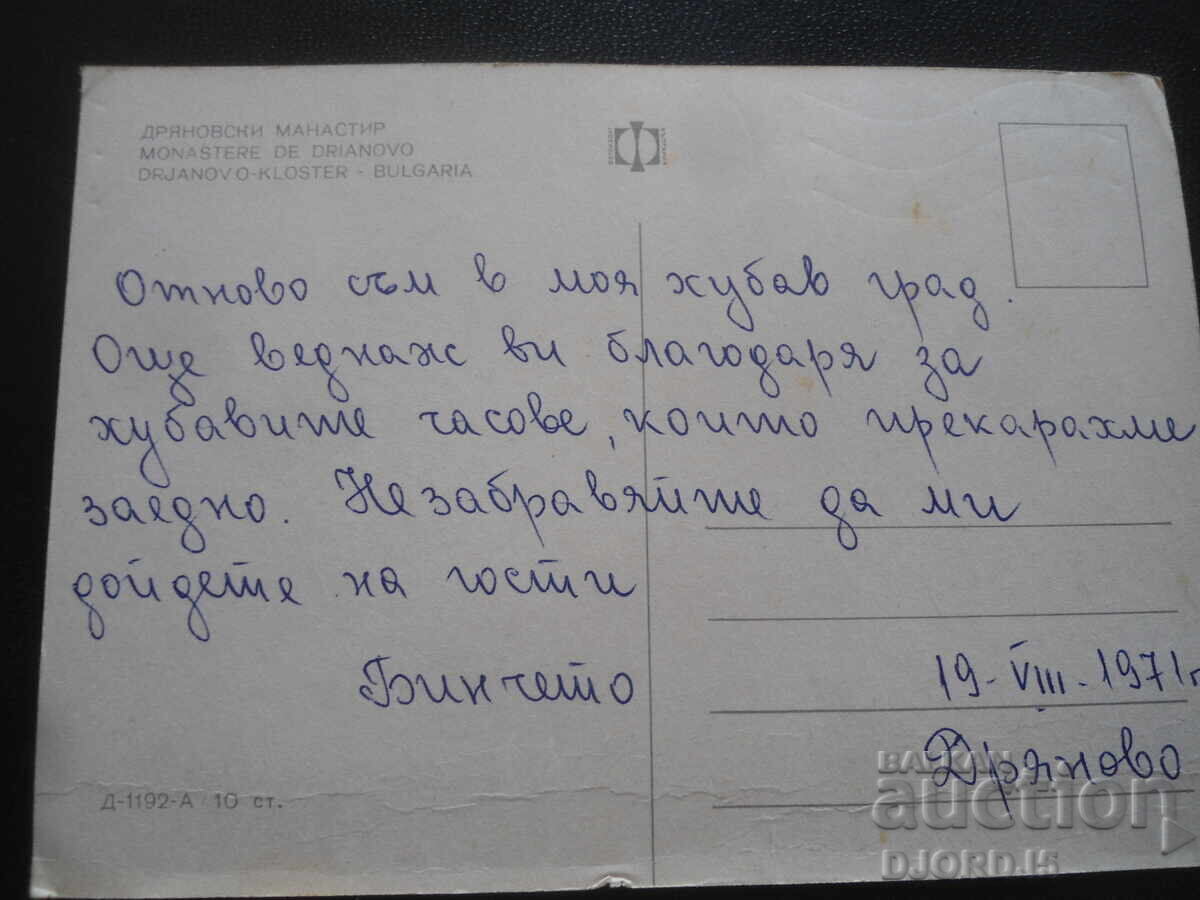 ДРЯНОВСКИ МАНАСТИР
MONASTERE DE DRIANOVO
DRJANOVO-KLOSTER - BULGARIA
Отново съм в моя хубав град.
Още веднаж ви благодаря за
хубавите часове, които прекарахме
заедно. Не забравяйте да ми
дойдете на гости
Бинчето
19-VIII.1971г
Дряново
Д-1192-А 10 ст.
BALKAN
auction
DJORD.I5